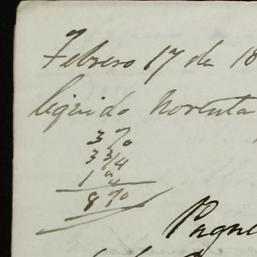 Febrero 17 de 18
liquido Noventa
3 %
3 3/4
1 "
8 %
Pague